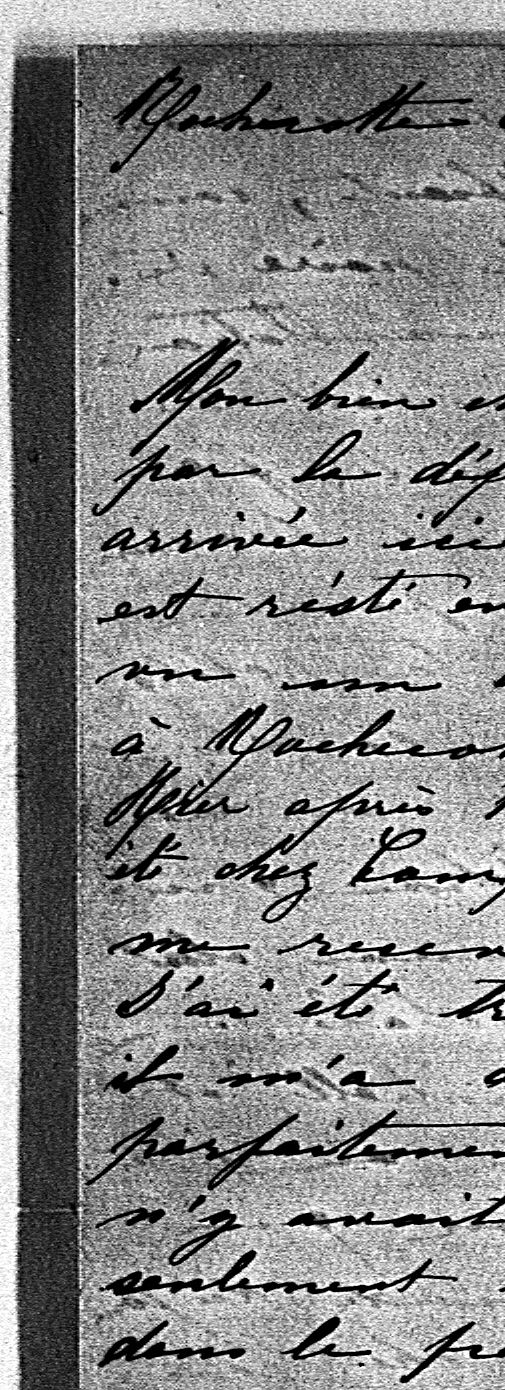 Mon bien
par la dép
arrivée ici
est résté en
vu son
à Rochecor
Hier après
été chez Camp
me recev
J'ai été tr
il m'a
parfaitemen
n'y avait
seulement
dans le pre